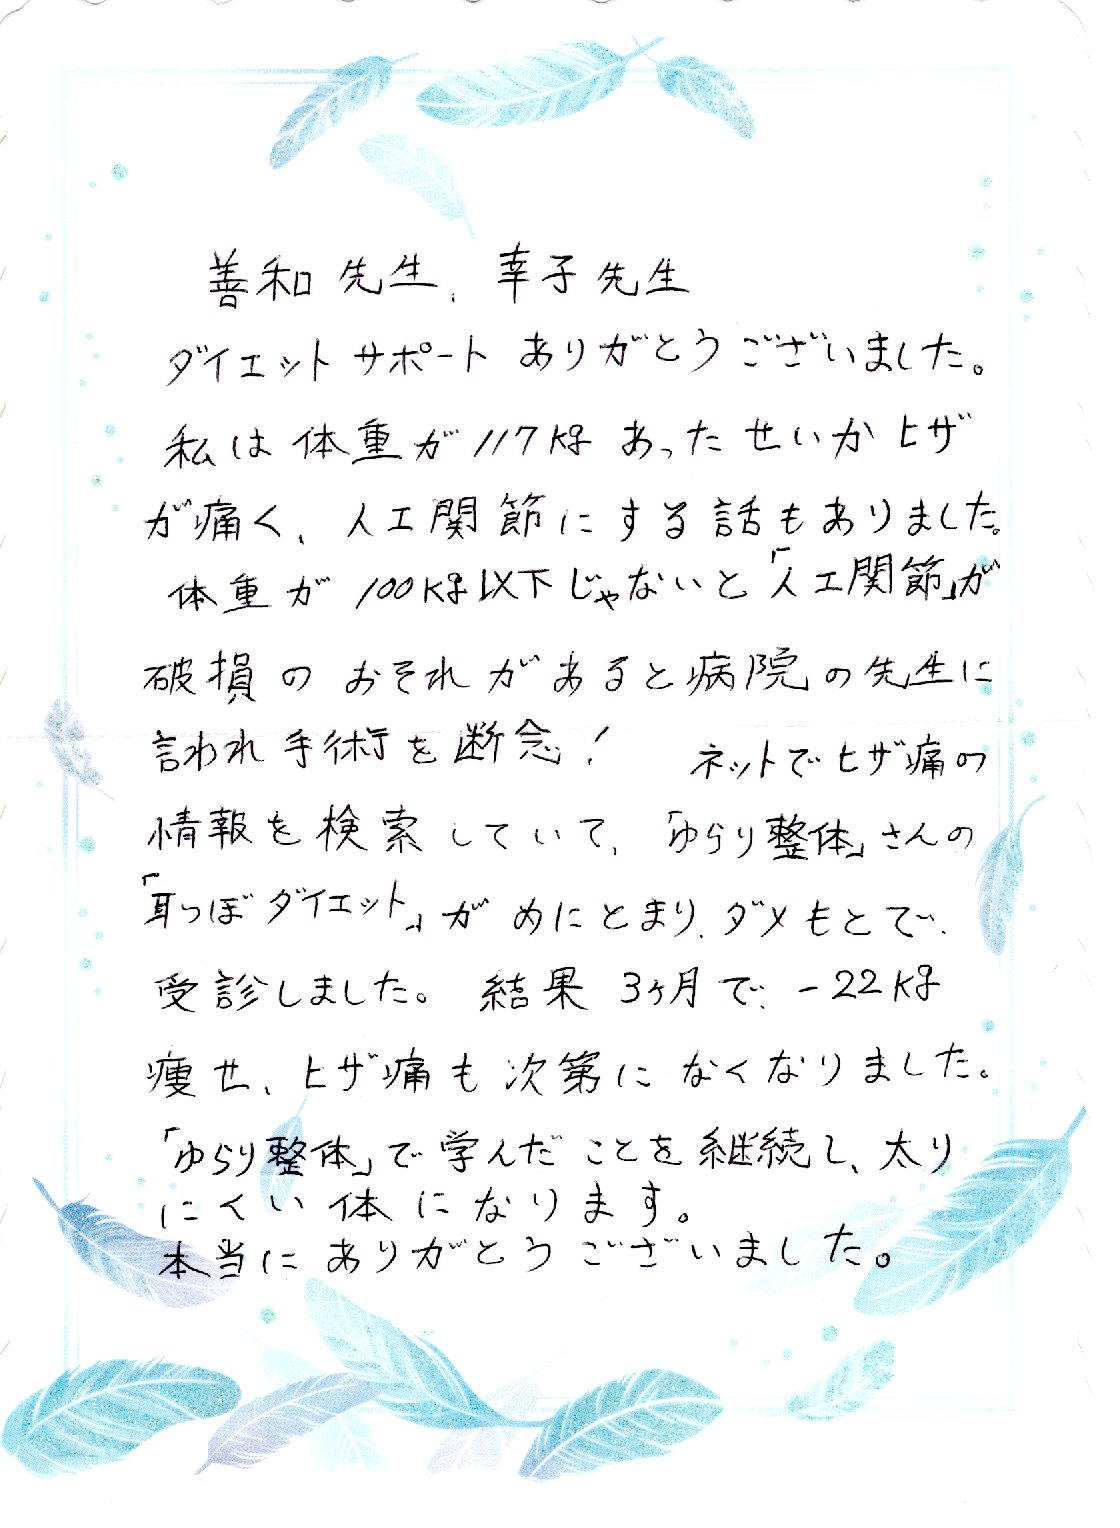 善和先生、幸子先生
ダイエットサポートありがとうございました。
私は体重が117kgあったせいかヒザ
が痛く、人工関節にする話もありました。
体重が100kg以下じゃないと「人工関節」が
破損のおそれがあると病院の先生に
言われ手術を断念！ ネットでヒザ痛の
情報を検索していて、「ゆらり整体」さんの
「耳つぼダイエット」がめにとまり、ダメもとで、
受診しました。結果3ヶ月で、-22kg
痩せ、ヒザ痛も次第になくなりました。
「ゆらり整体」で学んだことを継続し、太り
にくい体になります。
本当にありがとうございました。